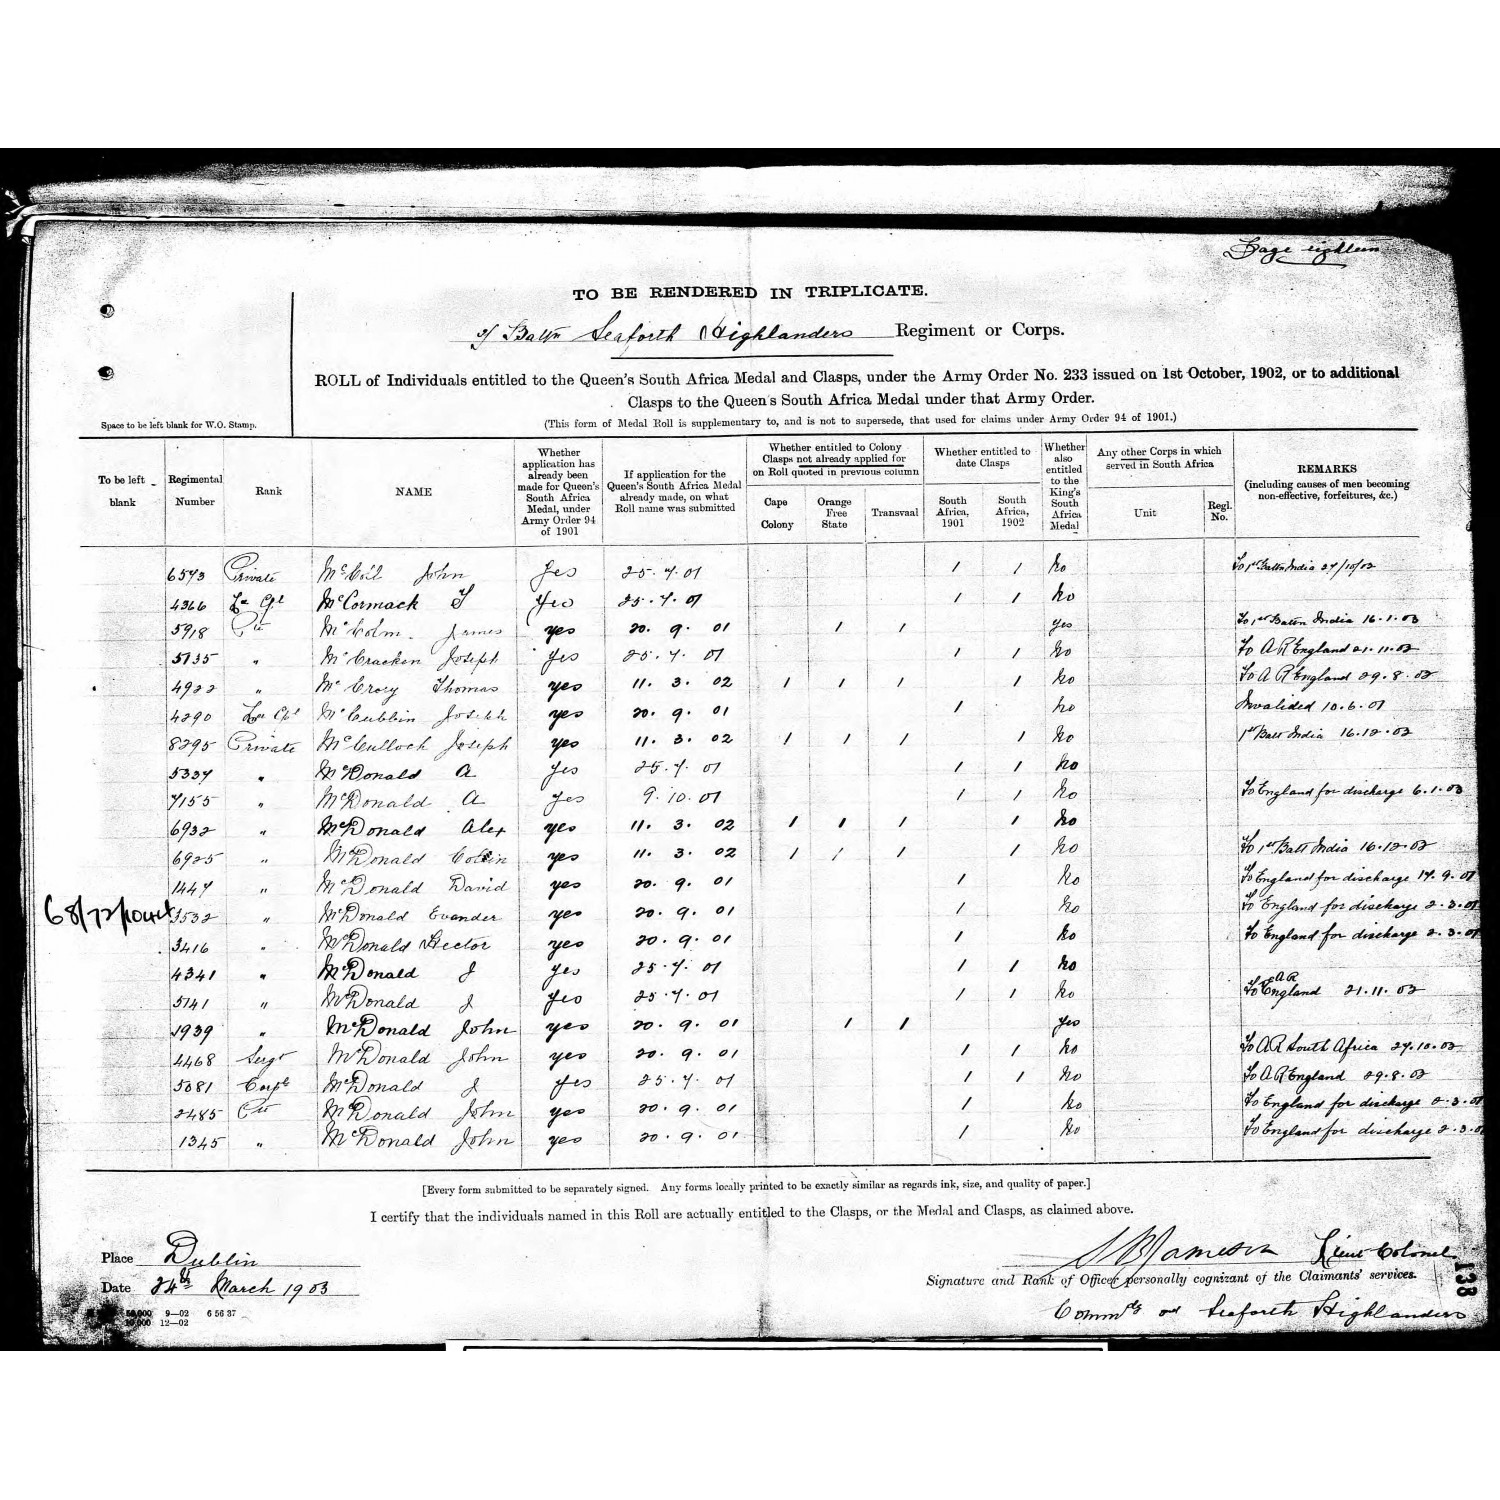 Page eighteen
TO BE RENDERED IN TRIPLICATE.
2/ Battn Seaforth Highlanders Regiment or Corps.
ROLL of Individuals entitled to the Queen's South Africa Medal and Clasps, under the Army Order No. 233 issued on 1st October, 1902, or to additional
Clasps to the Queen's South Africa Medal under that Army Order.
(This form of Medal Roll is supplementary to, and is not to supersede, that used for claims under Army Order 94 of 1901.)
Space to be left blank for W.O. Stamp.
To be left blank
Regimental Number
Rank
NAME
Whether application has already been made for Queen's South Africa Medal, under Army Order 94 of 1901
If application for the Queen's South Africa Medal already made, on what Roll name was submitted
Whether entitled to Colony Clasps not already applied for on Roll quoted in previous column
Cape Colony
Orange Free State
Transvaal
Whether entitled to date Clasps
South Africa, 1901
South Africa, 1902
Whether also entitled to the King's South Africa Medal
Any other Corps in which served in South Africa
Unit
Regl. No.
REMARKS
(including causes of men becoming non-effective, forfeitures, &c.)
6573 Private McCoil John Yes 25.7.01 / / No To 1st Battn India 27/10/02
4366 Lce Cpl McCormack T Yes 25.7.01 / / No
5918 Pte McColm James yes 20.9.01 / / yes To 1st Battn India 16.1.03
5135 " McCracken Joseph Yes 25.7.01 / / No To A R England 21.11.02
4922 " McCrory Thomas yes 11.3.02 / / / / No To A R England 29.8.02
4290 Lce Cpl McCubbin Joseph yes 20.9.01 / No Invalided 10.6.01
8295 Private McCulloch Joseph yes 11.3.02 / / / / No 1st Batt India 16.12.02
5337 " McDonald A Yes 25.7.01 / / No
7155 " McDonald A Yes 9.10.01 / / No To England for discharge 6.1.03
6932 " McDonald Alex yes 11.3.02 / / / / No
6925 " McDonald Collin yes 11.3.02 / / / / No To 1st Batt India 16.12.02
1447 " McDonald David yes 20.9.01 / No To England for discharge 17.9.01
68/72/1044 3532 " McDonald Evander yes 20.9.01 / No To England for discharge 2.3.01
3416 " McDonald Hector yes 20.9.01 / No To England for discharge 2.3.01
4341 " McDonald J Yes 25.7.01 / / No
5141 " McDonald J Yes 25.7.01 / / No To A R England 21.11.02
1939 " McDonald John yes 20.9.01 / / Yes
4468 Sergt McDonald John yes 20.9.01 / / No To A R South Africa 27.10.02
5081 Corpl McDonald J Yes 25.7.01 / / No To A R England 29.8.02
2485 Pte McDonald John yes 20.9.01 / No To England for discharge 2.3.01
1345 " McDonald John yes 20.9.01 / No To England for discharge 2.3.01
[Every form submitted to be separately signed. Any forms locally printed to be exactly similar as regards ink, size, and quality of paper.]
I certify that the individuals named in this Roll are actually entitled to the Clasps, or the Medal and Clasps, as claimed above.
Place Dublin
Date 24th March 1903
Jameson Lieut Colonel
Signature and Rank of Officer personally cognizant of the Claimants' services.
Commdg 2nd Seaforth Highlanders
50,000 9—02 6 56 37
10,000 12—02
138